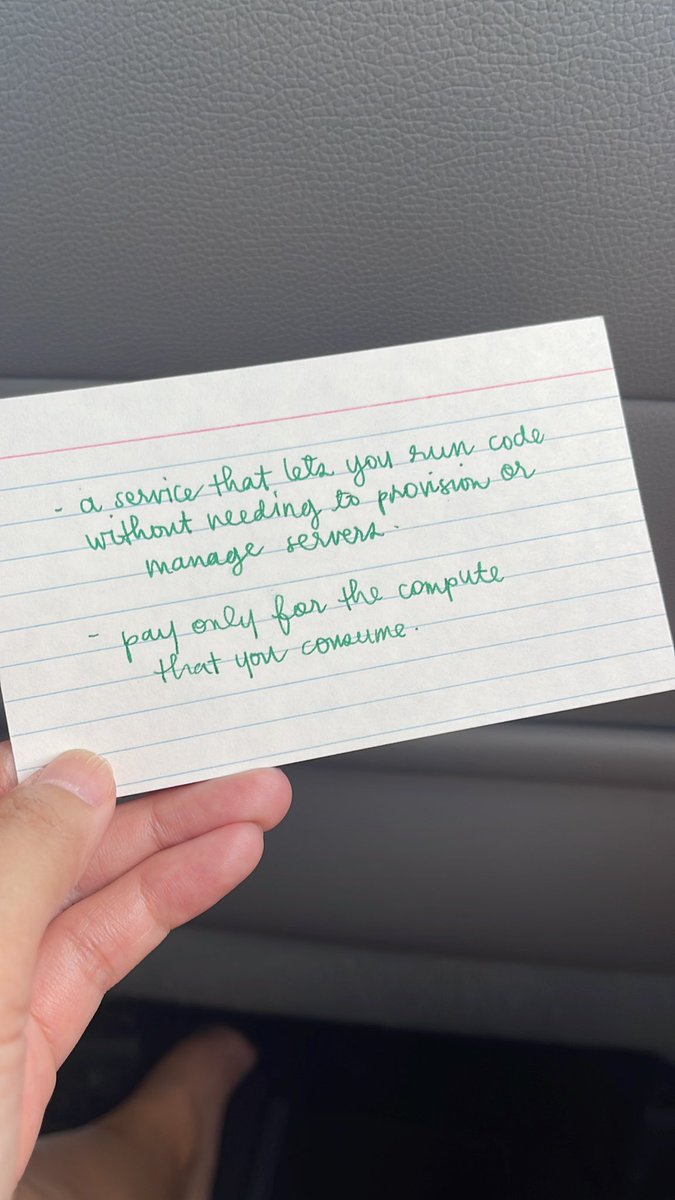 - a service that lets you run code
without needing to provision or
manage servers.
- pay only for the compute
that you consume.